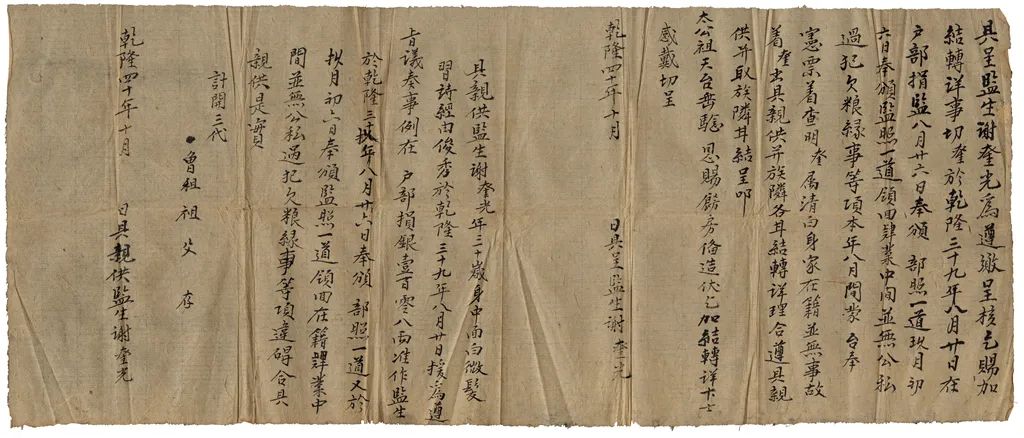 具呈監生謝奎光為遵繳呈核乞賜加
結轉詳事切奎於乾隆三十九年八月廿日在
户部捐監八月廿六日奉頒 部照一道玖月初
六日奉頒監照一道領回肄業中间並無公私
過犯欠粮緣事等項本年八月間蒙 台奉
憲票着查明奎属清白身家在籍並無事故
着奎出具親供并族隣各耳結轉詳理合遵具親
供并取族隣耳結呈叩
太公祖天台岳騐 恩賜餙房俻造伏乞加結轉詳卡士
感戴切呈
乾隆四十年十月 日具呈監生謝 奎光
具親供監生謝奎光年三十歲身中面白微髮
習詩經由俊秀於乾隆三十九年八月廿日援為遵
旨議奏事例在 户部損銀壹百零八両准作監生
於乾隆三十玖年八月廿六日奉頒 部照一道又於
玖月初六日奉頒監照一道領回在籍肄業中
間並無公私過犯欠粮緣事等項違碍合具
親供是實
計開三代
曾祖 祖 父 存
乾隆四十年十月 日具親供監生謝奎光